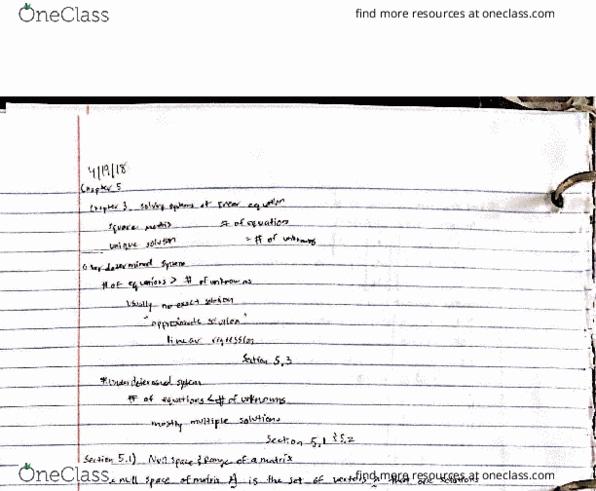 OneClass
find more resources at oneclass.com
4/19/18
Chapter 5
Chapter 3. solving systems of linear equation
square matrix # of equations
unique solution = # of unknowns
Overdetermined system
# of equations > # of unknowns
Usually no exact solution
"approximate solution"
linear regression
Section 5.3
*Underdetermined system
# of equations < # of unknowns
mostly multiple solutions
Section 5.1 & 5.2
Section 5.1) Null space & Range of a matrix
OneClass
null space of matrix A is the set of vectors that are solutions
find more resources at oneclass.com